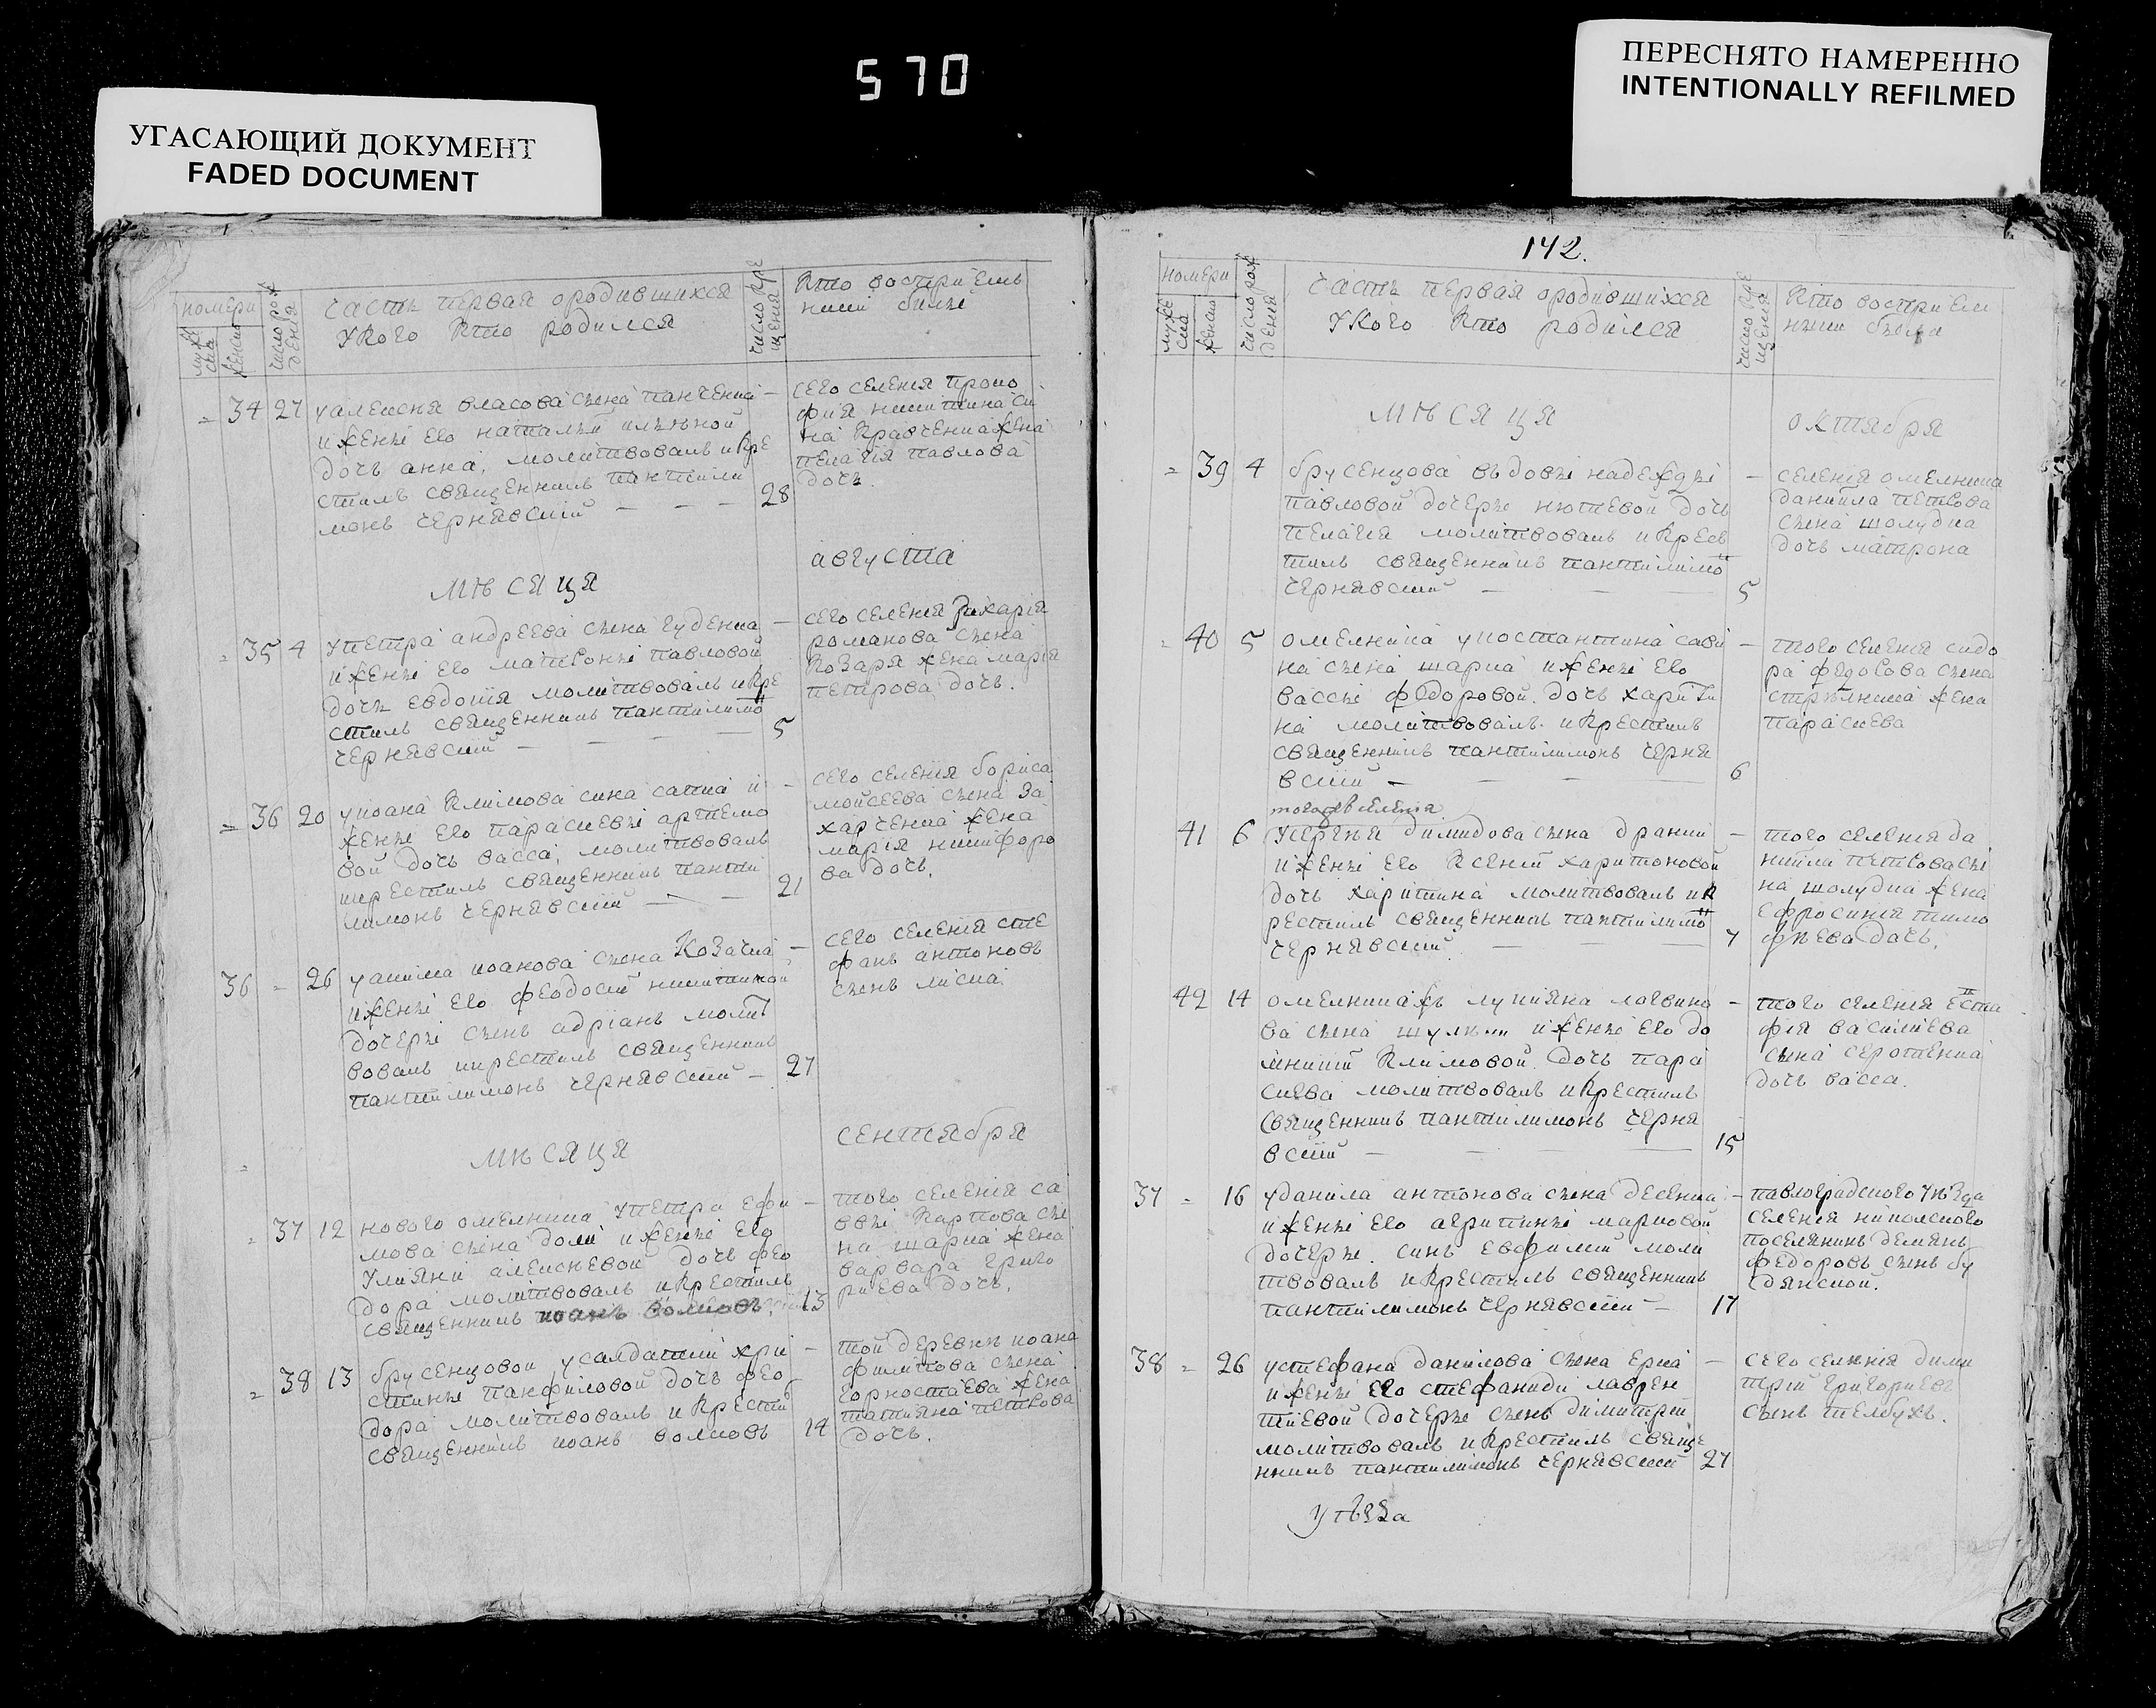 570
УГАСАЮЩИЙ ДОКУМЕНТ
FADED DOCUMENT
ПЕРЕСНЯТО НАМЕРЕННО
INTENTIONALLY REFILMED
номери
мужеска
женска
число рож
дения
часть первая ородившихся
укого кто родился
число кре
щения
кто восприемъ
ники были
= 34 27 уалексия власова сына панченка —
ижены его наталии
дочь анна, молитвовалъ икре
стилъ священникъ пантили
монъ чернявский — — — 28
сего селения проко
фия никитина си
на кравченка жена
пелагия павлова
дочь.
мѣсяця
августа
= 35 4 упетра андреева сына гуденка —
ижены его матроны павловой
дочь евдокия молитвовалъ икре
стилъ священникъ пантилимо
чернявский — — — — 5
сего селения захария
романова сына
козаря жена мария
петрова дочь.
= 36 20 уиоана климова сина сапка и —
жены его параскевы артемо
вой дочь васса, молитвовалъ
икрестилъ священникъ панти
лимонъ чернявский — — 21
сего селения бориса
мойсеева сына за
харченка жена
мария никифоро
ва дочь.
36 = 26 уакима иоанова сына козачка —
ижены его феодосии никитиной
дочеры сынъ адрианъ молит
вовалъ икрестилъ священникъ
пантилимонъ чернявский — 27
сего селения сте
фанъ антоновъ
сынъ лиска.
мѣсяця
сентября
= 37 12 нового омелника упетра ефи —
мова сына доли ижены его
улияни алексиевой дочь фео
дора молитвовалъ икрестилъ
священникъ иоанъ волковъ. 13
того селения са
ввы карпова сы
на шарка жена
варвара григо
риева дочь.
= 38 13 брусенцовой усалдатки хри —
стины панфиловой дочь фео
дора молитвовалъ икрести
священникъ иоанъ волковъ 14
той деревнѣ иоана
филипова сына
горностаева жена
татияна петрова
дочь.
142.
номери
мужеска
женска
число рож
дения
часть первая ородившихся
укого кто родился
число кре
щения
кто восприем
ники была
мѣсяця
октября
= 39 4 брусенцова въдовы надежды —
павловой дочеры нютевой дочь
пелагия молитвовалъ икрес
тилъ священникъ пантилимо
чернявский — — — 5
селения омелника
даниила петрова
сына шолудка
дочь матрона
= 40 5 омелника укостантина сави —
на сына шарка ижены его
вассы федоровой. дочь харити
на молитвовалъ икрестилъ
священникъ пантилимонъ черня
вский — — — 6
того селения сидо
ра федосова сына
стрѣлника жена
параскева
тогожъ селения
41 6 усергия димидова сына дранки —
ижены его ксении харитоновой
дочь харитина молитвовалъ ик
рестилъ священникъ пантилимо
чернявский. — — 7
того селения да
ниила петрова сы
на шолудка жена
ефросиния тимо
фѣева дочь.
42 14 омелникажъ лукияна логвино —
ва сына ижены его до
мникии климовой. дочь пара
скева молитвовалъ икрестилъ
священникъ пантилимонъ черня
вский — — — 15
того селения еста
фия василиева
сына серотенка
дочь васса.
37 = 16 уданила антонова сына десенка —
ижены его агрипины марковой
дочеры. синъ евфимий моли
твовалъ икрестилъ священникъ
пантилимонъ чернявский — 17
павлоградского уѣзда
селения николского
поселянинъ демянъ
федоровъ сынъ бу
дянской.
38 = 26 устефана данилова сына ерка —
ижены его стефаниди лаврен
тиевой дочеры сынъ димитрий
молитвовалъ икрестилъ свяще
нникъ пантилимонъ чернявский 27
сего селкния дими
трий григориевъ
сынъ телбухъ.